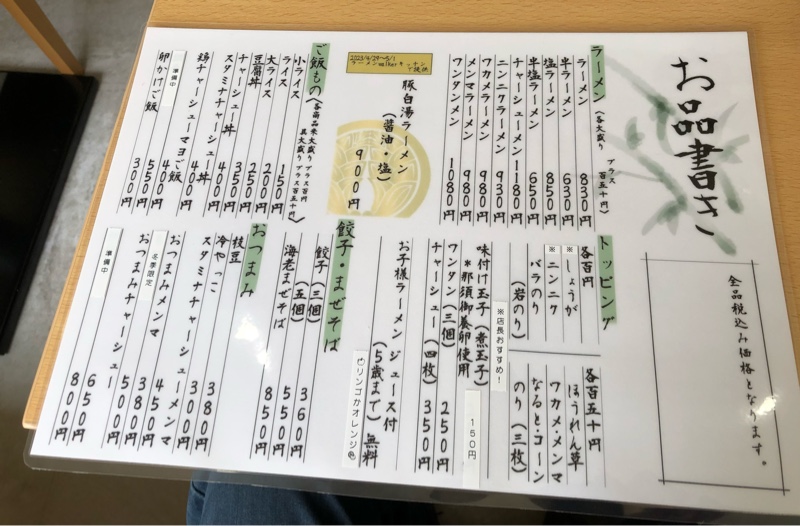 お品書き
全品税込み価格となります。
ラーメン(各大盛り プラス百五十円)
ラーメン 830円
半ラーメン 630円
塩ラーメン 850円
半塩ラーメン 650円
チャーシューメン 1180円
ニンニクラーメン 930円
ワカメラーメン 980円
メンマラーメン 980円
ワンタンメン 1080円
2023/4/29〜5/1
ラーメンwalkerキッチン
で提供
豚白湯ラーメン
(醤油・塩)
900円
ご飯もの(各商品米大盛り プラス百円
具大盛り プラス百五十円)
小ライス 150円
ライス 200円
大ライス 250円
豆腐丼 350円
チャーシュー丼 400円
スタミナチャーシュー丼 400円
鶏チャーシューマヨご飯 550円
準備中
卵かけご飯 300円
トッピング
各百円
※しょうが
※ニンニク
バラのり
(岩のり)
各百五十円
ほうれん草
ワカメ・メンマ
なると・コーン
のり(三枚)
※店長おすすめ!
味付け玉子(煮玉子)
*那須御養卵使用
150円
ワンタン(三個) 250円
チャーシュー(四枚) 350円
お子様ラーメン ジュース付
(5歳まで)無料
リンゴかオレンジ
餃子・まぜそば
餃子(三個) 360円
(五個) 550円
海老まぜそば 850円
おつまみ
枝豆 380円
冷やっこ 300円
スタミナチャーシューメンマ 450円
おつまみメンマ 380円
冬季限定
おつまみチャーシュー 500円
準備中
650円
800円